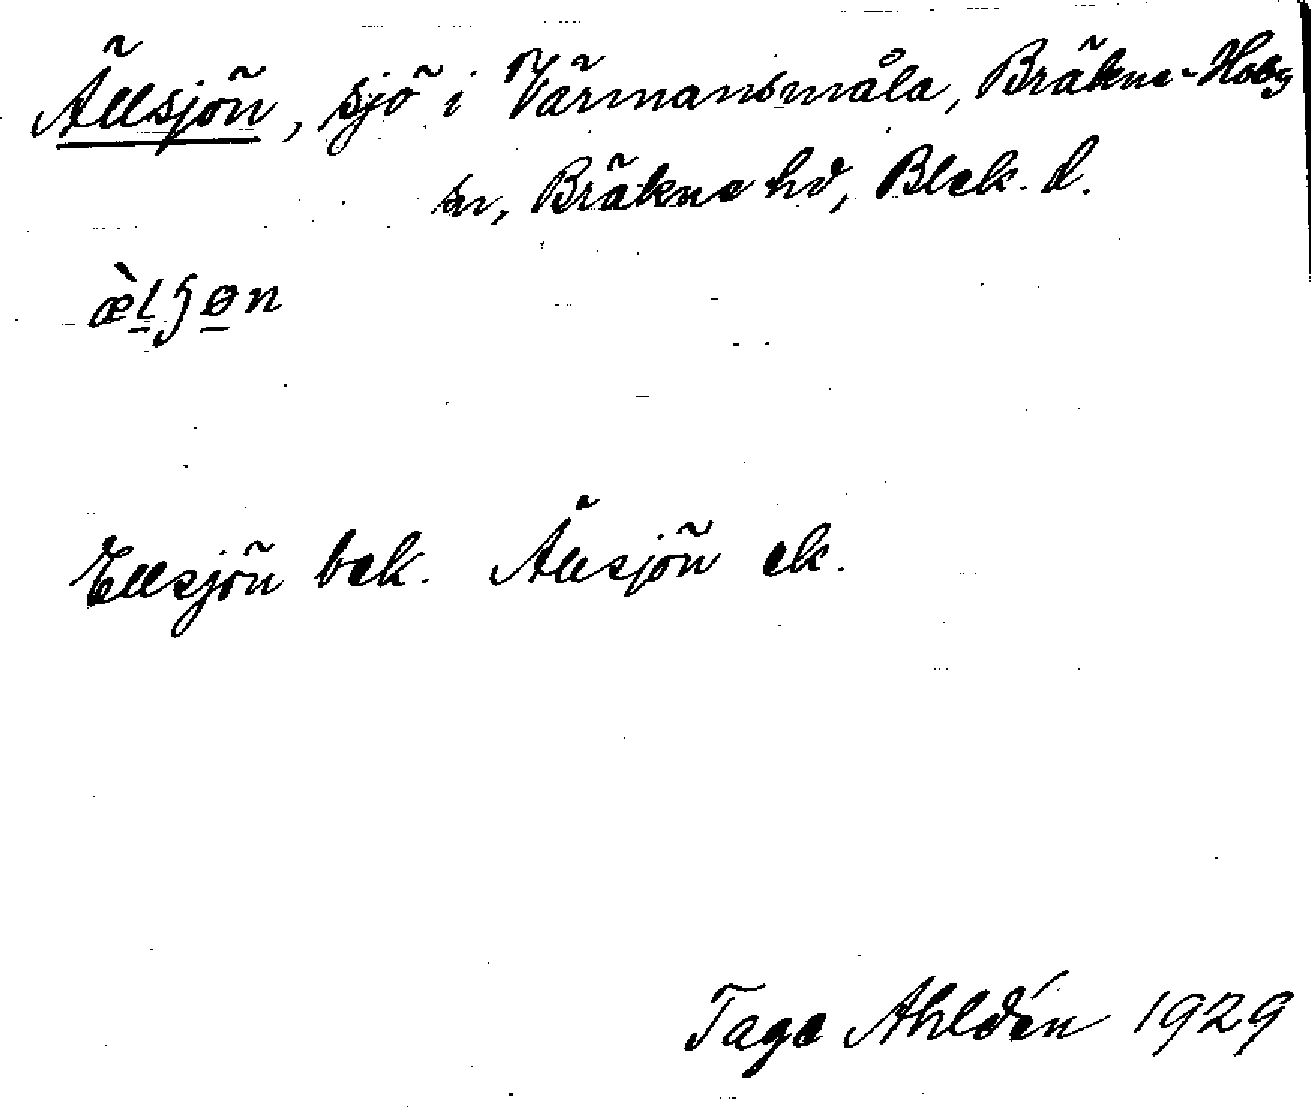 Ällsjön, sjö i Värmansmåla, Bräkne-Hoby
sn, Bräkne hd, Blek. l.
æ̀lʃøn
Ellsjön bek. Ällsjön ek.
Tage Ahldén 1929